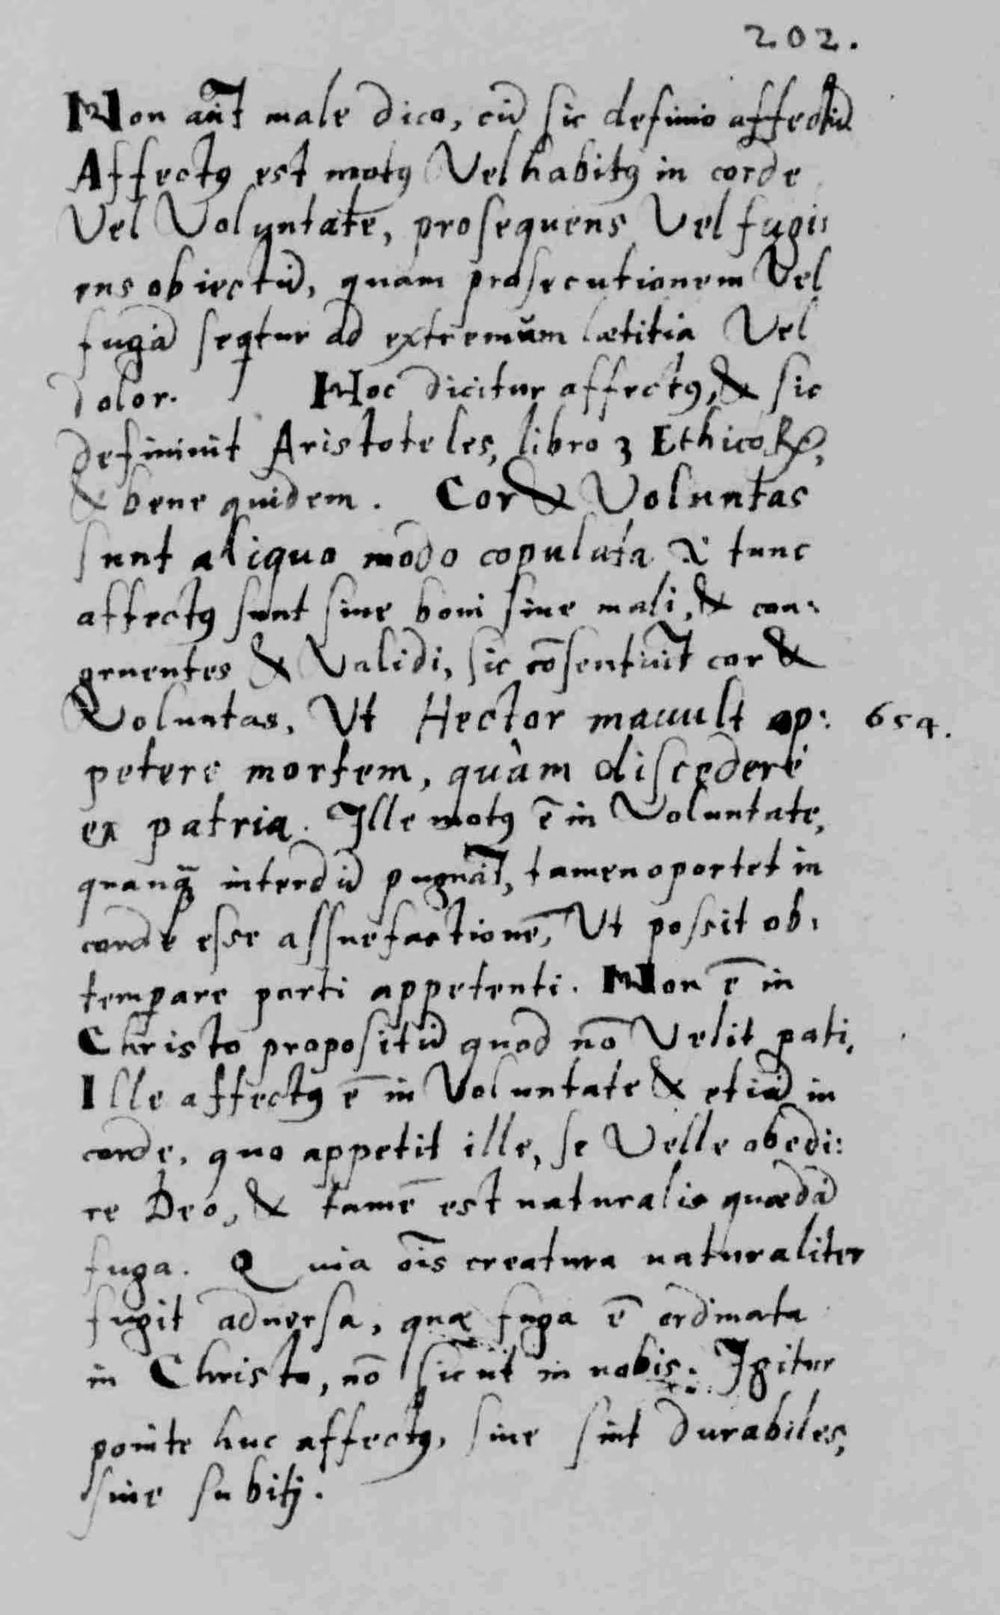 202.
Non aūt male dico, cū sic definio affectū.
Affectꝰ est motꝰ Vel habitꝰ in corde
Vel Voluntate, prosequens Vel fugi¬
ens obiectū, quam prosecutionem Vel
fugā seqtur ad extremŭm lætitia Vel
dolor. Hoc dicitur affectꝰ, & sic
definiuit Aristoteles, libro 3 Ethicoꝝ,
& bene quidem. Cor & Voluntas
sunt aliquo modo copulata & tunc
affectꝰ sunt siue boni siue mali, & con:
gruentes & Validi, sic cōsentiūt cor &
Voluntas, Ut Hector mauult op:
654.
petere mortem, quàm discedere
ex patria. Ille motꝰ ē in Voluntate,
quanqꝫ interdū pugnāt, tamen oportet in
corde esse assuefactionē, Ut possit ob:
temperare parti appetenti. Non ē in
Christo propositū quod nō Velit pati,
Ille affectꝰ ē in Voluntate & etiā in
corde, quo appetit ille, se Velle obedi:
re Deo, & tamē est naturalis quædā
fuga. Quia oīs creatura naturaliter
fugit aduersa, quæ fuga ē ordinata
in Christo, nō sicut in nobis: Igitur
ponite huc affectꝰ, siue sint durabiles,
siue subitj.